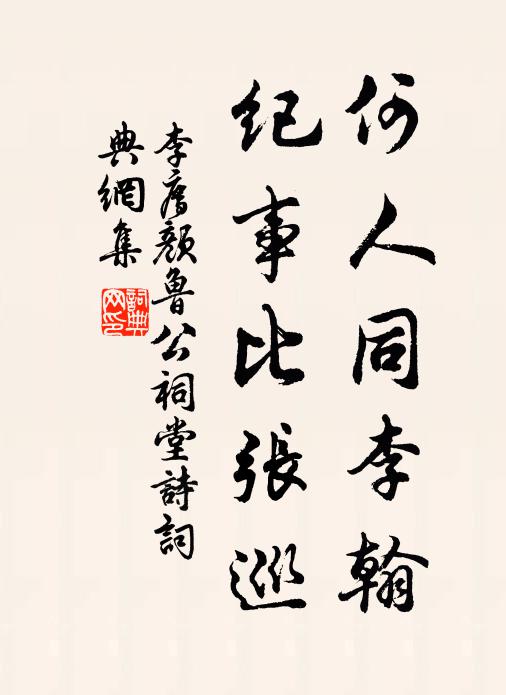 何人同李翰
紀事比張巡
李廌顏魯公祠堂詩詞
典網集
詞典
网印